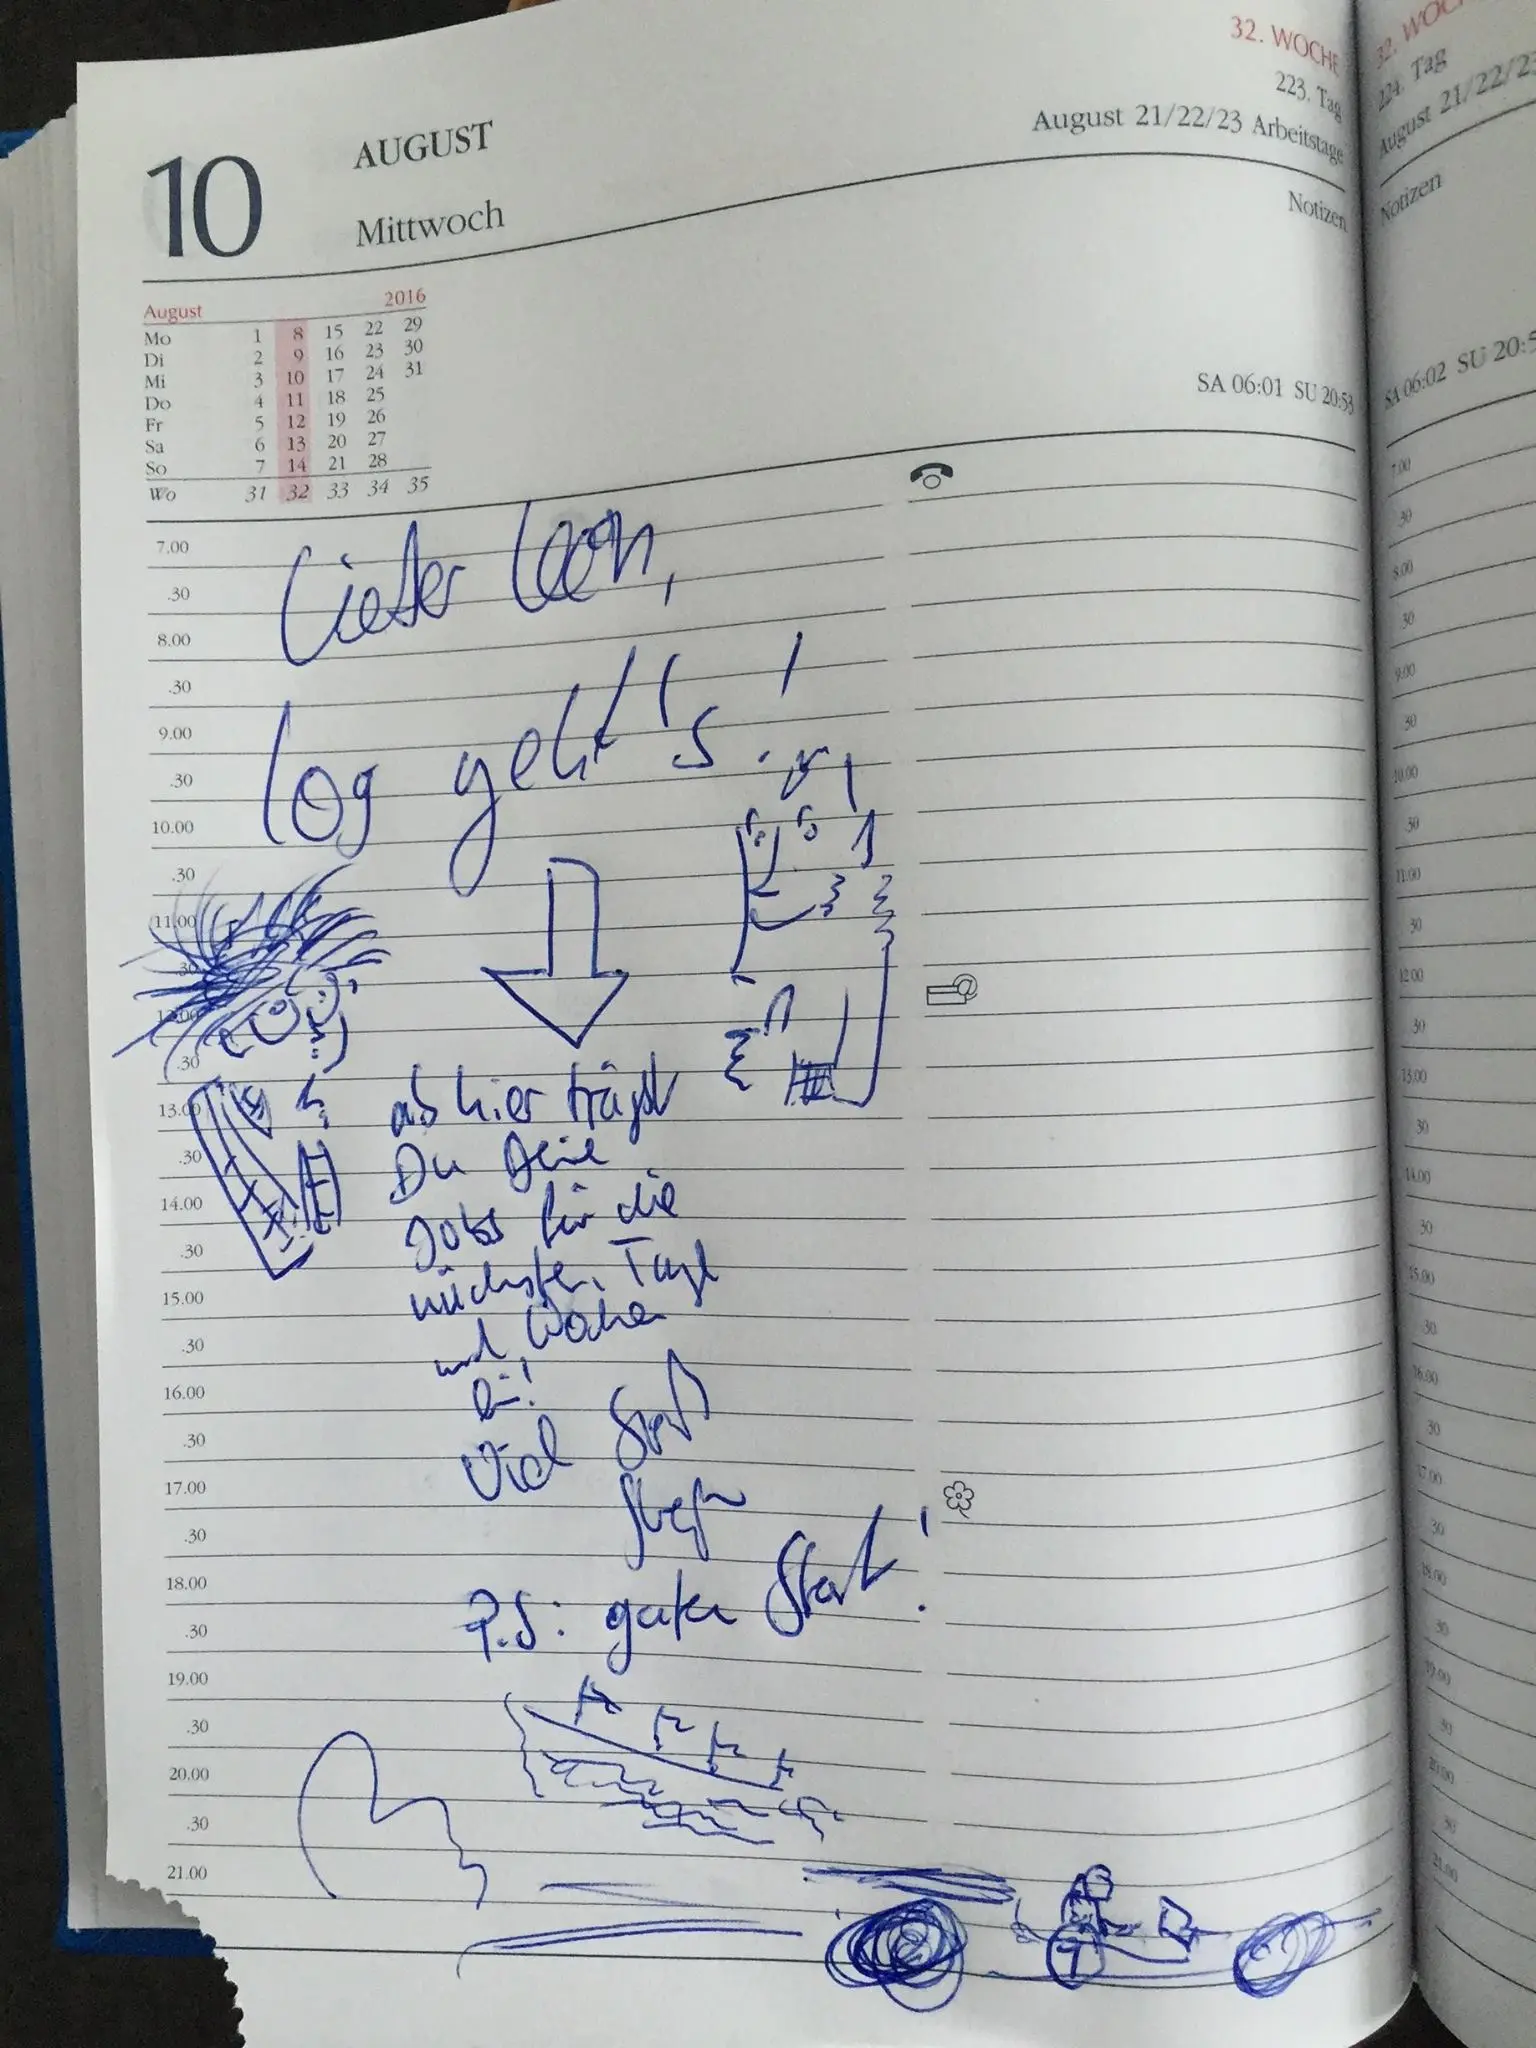 32. WOCHE
223. Tag
August 21/22/23 Arbeitstage
10
AUGUST
Mittwoch
Notizen
August 2016
Mo 1 8 15 22 29
Di 2 9 16 23 30
Mi 3 10 17 24 31
Do 4 11 18 25
Fr 5 12 19 26
Sa 6 13 20 27
So 7 14 21 28
Wo 31 32 33 34 35
SA 06:01 SU 20:53
7.00
.30
8.00
.30
9.00
.30
10.00
.30
11.00
.30
12.00
.30
13.00
.30
14.00
.30
15.00
.30
16.00
.30
17.00
.30
18.00
.30
19.00
.30
20.00
.30
21.00
Lieber Leon,
log geht's!
ab hier trägst
Du Deine
Jobs für die
nächsten Tage
und Wochen
Viel Spaß
P.S: guten Start!
7
32. WOCHE
224. Tag
August 21/22/23
Notizen
SA 06:02 SU 20:5
7.00
30
8.00
30
9.00
30
10.00
30
11.00
30
12.00
30
13.00
30
14.00
30
15.00
30
16.00
30
17.00
30
18.00
30
19.00
30
20.00
30
21.00